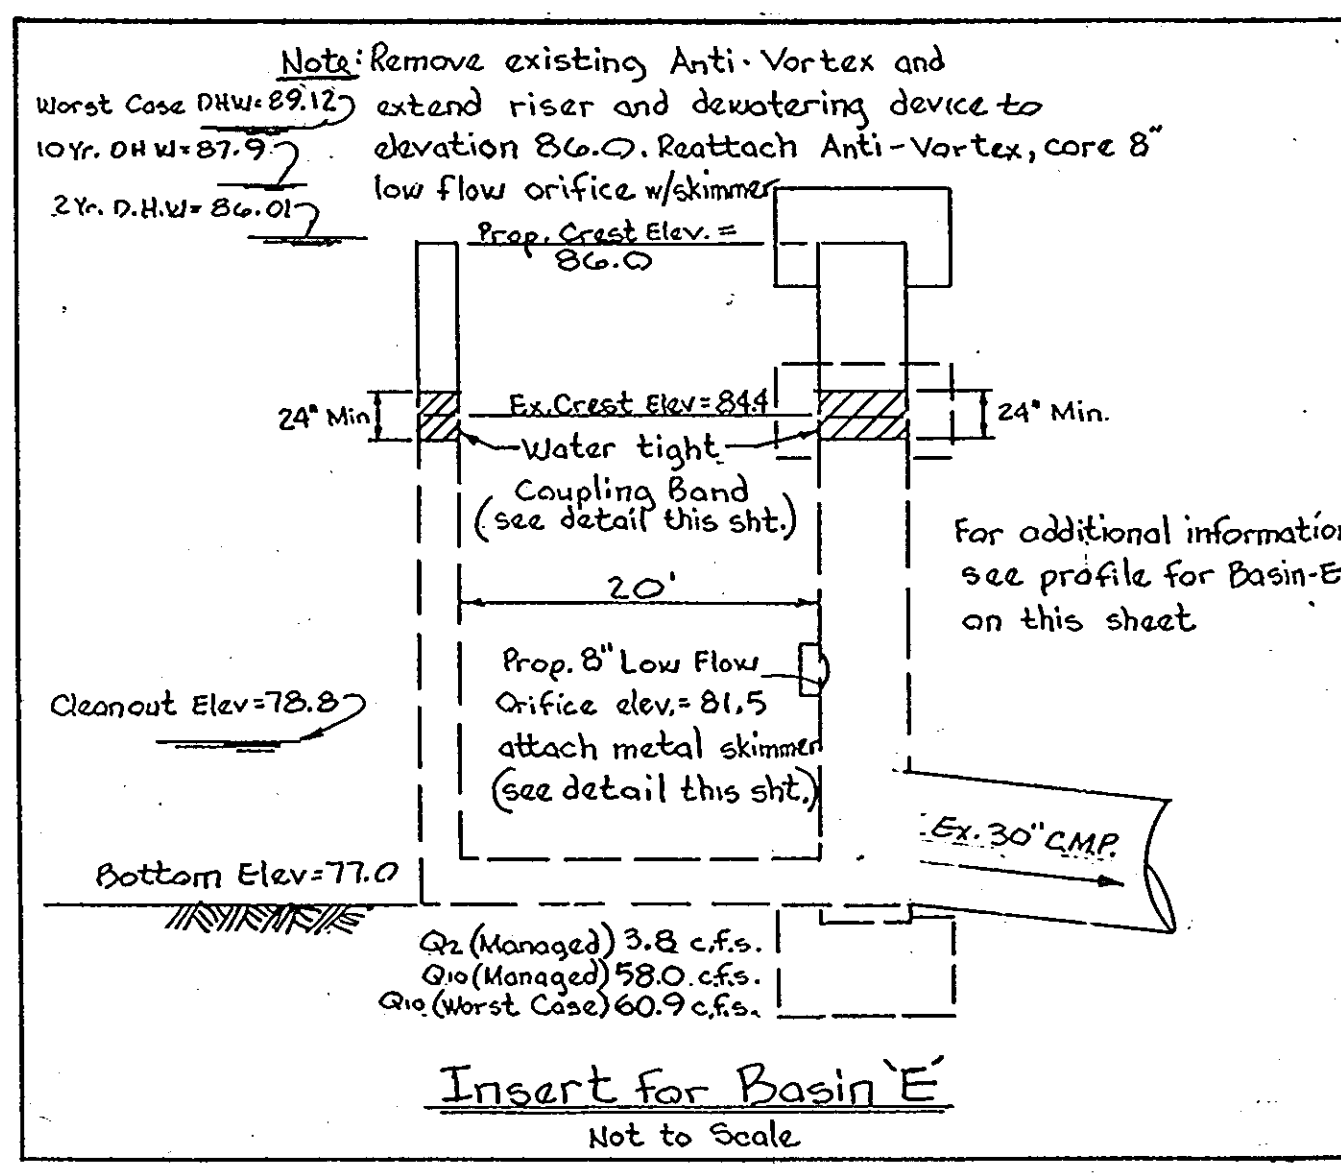 Note: Remove existing Anti-Vortex and
extend riser and dewatering device to
elevation 86.0. Reattach Anti-Vortex, core 8"
low flow orifice w/skimmer
Worst Case DHW=89.12
10Yr. DHW=87.9
2Yr. D.H.W=86.01
Prop. Crest Elev. =
86.0
24" Min
Ex. Crest Elev=84.4
24" Min.
Water tight
Coupling Band
(see detail this sht.)
For additional information
see profile for Basin-E
on this sheet
20'
Prop. 8" Low Flow
Orifice elev.=81.5
attach metal skimmer
(see detail this sht.)
Cleanout Elev=78.8
Ex. 30" C.M.P.
Bottom Elev=77.0
Q2 (Managed) 3.8 c.f.s.
Q10 (Managed) 58.0 c.f.s.
Q10 (Worst Case) 60.9 c.f.s.
Insert for Basin 'E'
Not to Scale